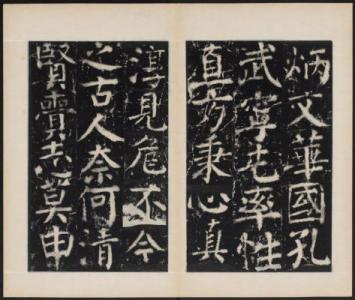 炳文華國孔
武寧屯率性
直方秉心真
淳見危不令
之古人奈何清
賢霣志莫申